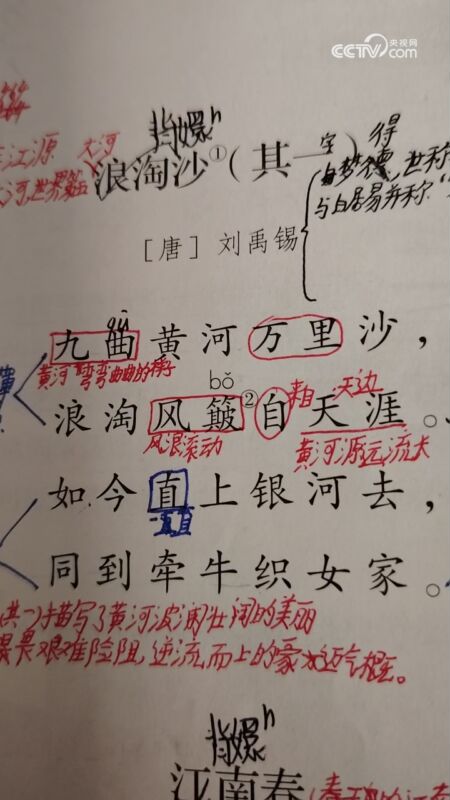 CCTV 央视网
com
江源 大河
浪淘沙①(其一) 得
字梦得,世称
与白居易并称"
[唐] 刘禹锡
qū
九曲黄河万里沙,
黄河"弯弯曲曲的样子
bǒ
来自 天边
浪淘风簸②自天涯。
风浪滚动
黄河源远流长
如今直上银河去,
一直
同到牵牛织女家。
(其一)描写了黄河波涛壮阔的美丽
畏艰难险阻,逆流而上的豪迈气概。
江南春